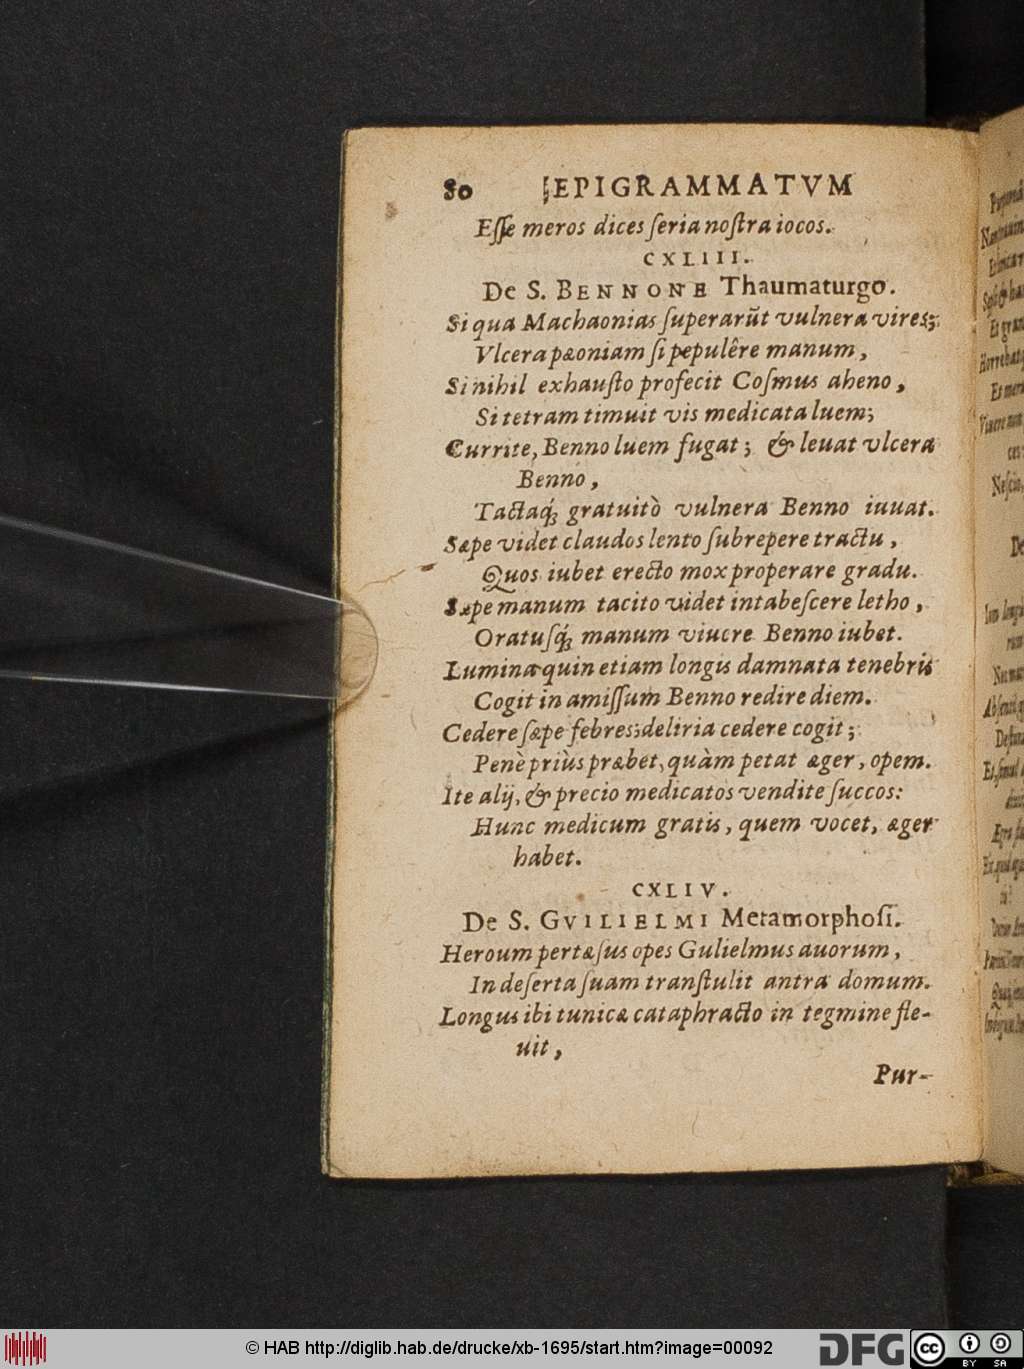 80 EPIGRAMMATVM
Eſſe meros dices ſeria noſtra iocos.
CXLIII.
De S. BENNONE Thaumaturgo.
Si qua Machaonias ſuperarũt vulnera vires;
Vlcera pæoniam ſi pepulêre manum,
Si nihil exhauſto profecit Coſmus aheno,
Si tetram timuit vis medicata luem;
Currite, Benno luem fugat; & leuat vlcera
Benno,
Tactaq́; gratuitò vulnera Benno iuuat.
Sæpe videt claudos lento ſubrepere tractu,
Quos iubet erecto mox properare gradu.
Sæpe manum tacito videt intabeſcere letho,
Oratuſq́; manum viuere Benno iubet.
Lumina quin etiam longis damnata tenebris
Cogit in amiſſum Benno redire diem.
Cedere ſæpe febres; deliria cedere cogit;
Penè priùs præbet, quàm petat æger, opem.
Ite alij, & precio medicatos vendite ſuccos:
Hunc medicum gratis, quem vocet, æger
habet.
CXLIV.
De S. GVILIELMI Metamorphoſi.
Heroum pertæſus opes Gulielmus auorum,
In deſerta ſuam tranſtulit antra domum.
Longus ibi tunicæ cataphracto in tegmine fle-
uit,
Pur-
© HAB http://diglib.hab.de/drucke/xb-1695/start.htm?image=00092
DFG
cc BY SA